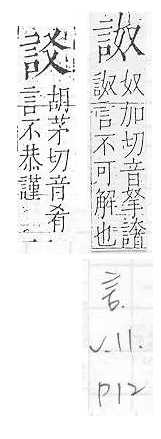 詉
奴加切音拏譇
詉言不可解也
胡茅切音肴
言不恭謹
言.
v.11.
P12